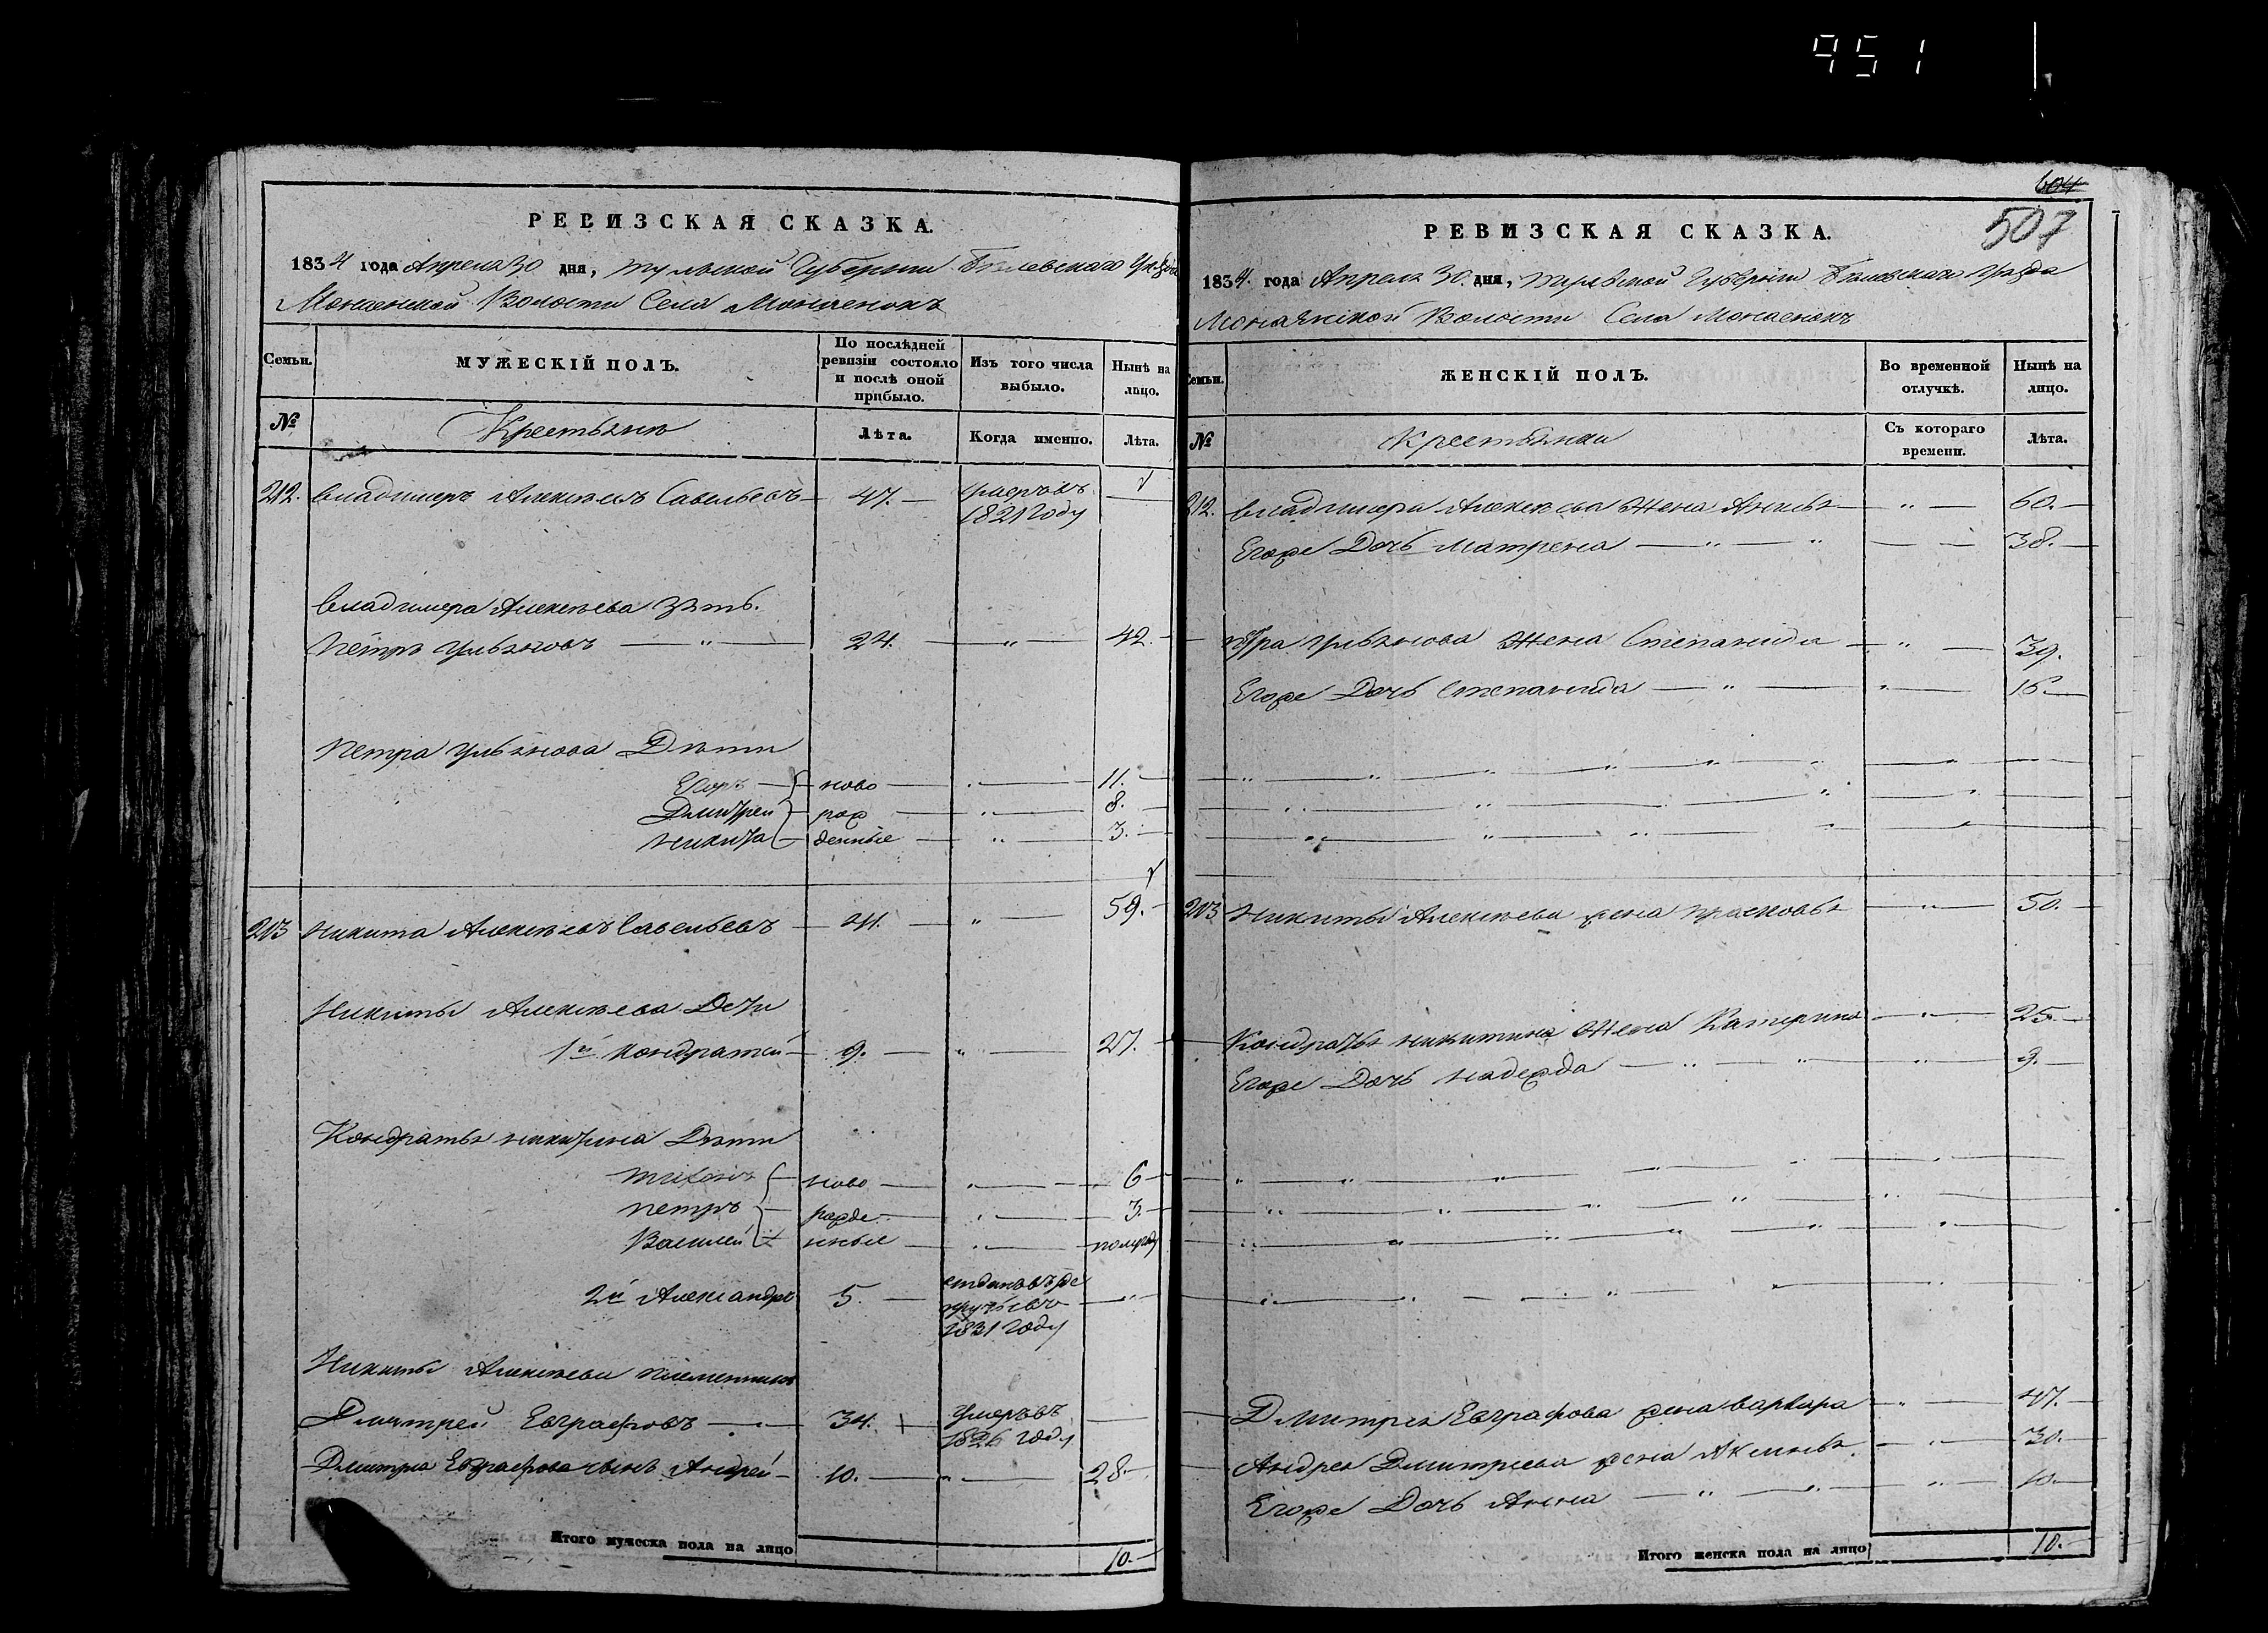 951
РЕВИЗСКАЯ СКАЗКА.
1834 года Апреля 30 дня, Тульской Губернии Белевскаго Уезда
Волости Села Монаенокъ
Семьи. МУЖЕСКІЙ ПОЛЪ. По послѣдней ревизіи состояло и послѣ оной прибыло. Изъ того числа выбыло. Нынѣ на лицо.
№ Крестьяне Лѣта. Когда именно. Лѣта.
212. Владимеръ Алексеевъ Савельевъ 47. умеръ въ 1821 году
Владимера Алексеева Зять.
Петръ Ульяновъ 24. 42.
Петра Ульянова Дѣти
Егоръ ново 11.
Дмитрей рож 8.
Никита денные 3.
213 Никита Алексеевъ Савельевъ 41. 59.
Никиты Алексеева Дети
1й Кондратей 9. 27.
Кондратья Никитина Дѣти
Тихонъ ново 6
Петръ рожде 3.
Василей нные полгоду
2й Александръ 5. отданъ въ рекруты въ 1831 году
Никиты Алексеева племянникъ
Дмитрей Евграфовъ 34. умеръ въ 1826 году
Дмитрия Евграфова сынъ Андрей 10. 28.
Итого мужеска пола на лицо 10.
604
507
РЕВИЗСКАЯ СКАЗКА.
1834. года Апреля 30. дня, Тульской Губернии Белевскаго Уезда
Монаенской Волости Села Монаенокъ
Семьи. ЖЕНСКІЙ ПОЛЪ. Во временной отлучкѣ. Нынѣ на лицо.
№ Крестьянки Съ котораго времени. Лѣта.
212. Владимера Алексеева Жена 60.
Егоже Дочь Матрена 38.
Петра Ульянова Жена Степанида 39.
Егоже Дочь Степанида 16.
213 Никиты Алексеева жена Прасковья 50.
Кондратья Никитина Жена Катерина 25.
Егоже Дочь Надежда 9.
Дмитрея Евграфова жена Варвара 47.
Андрея Дмитриева жена Аксинья 30.
Егоже Дочь Анна 10.
Итого женска пола на лицо 10.